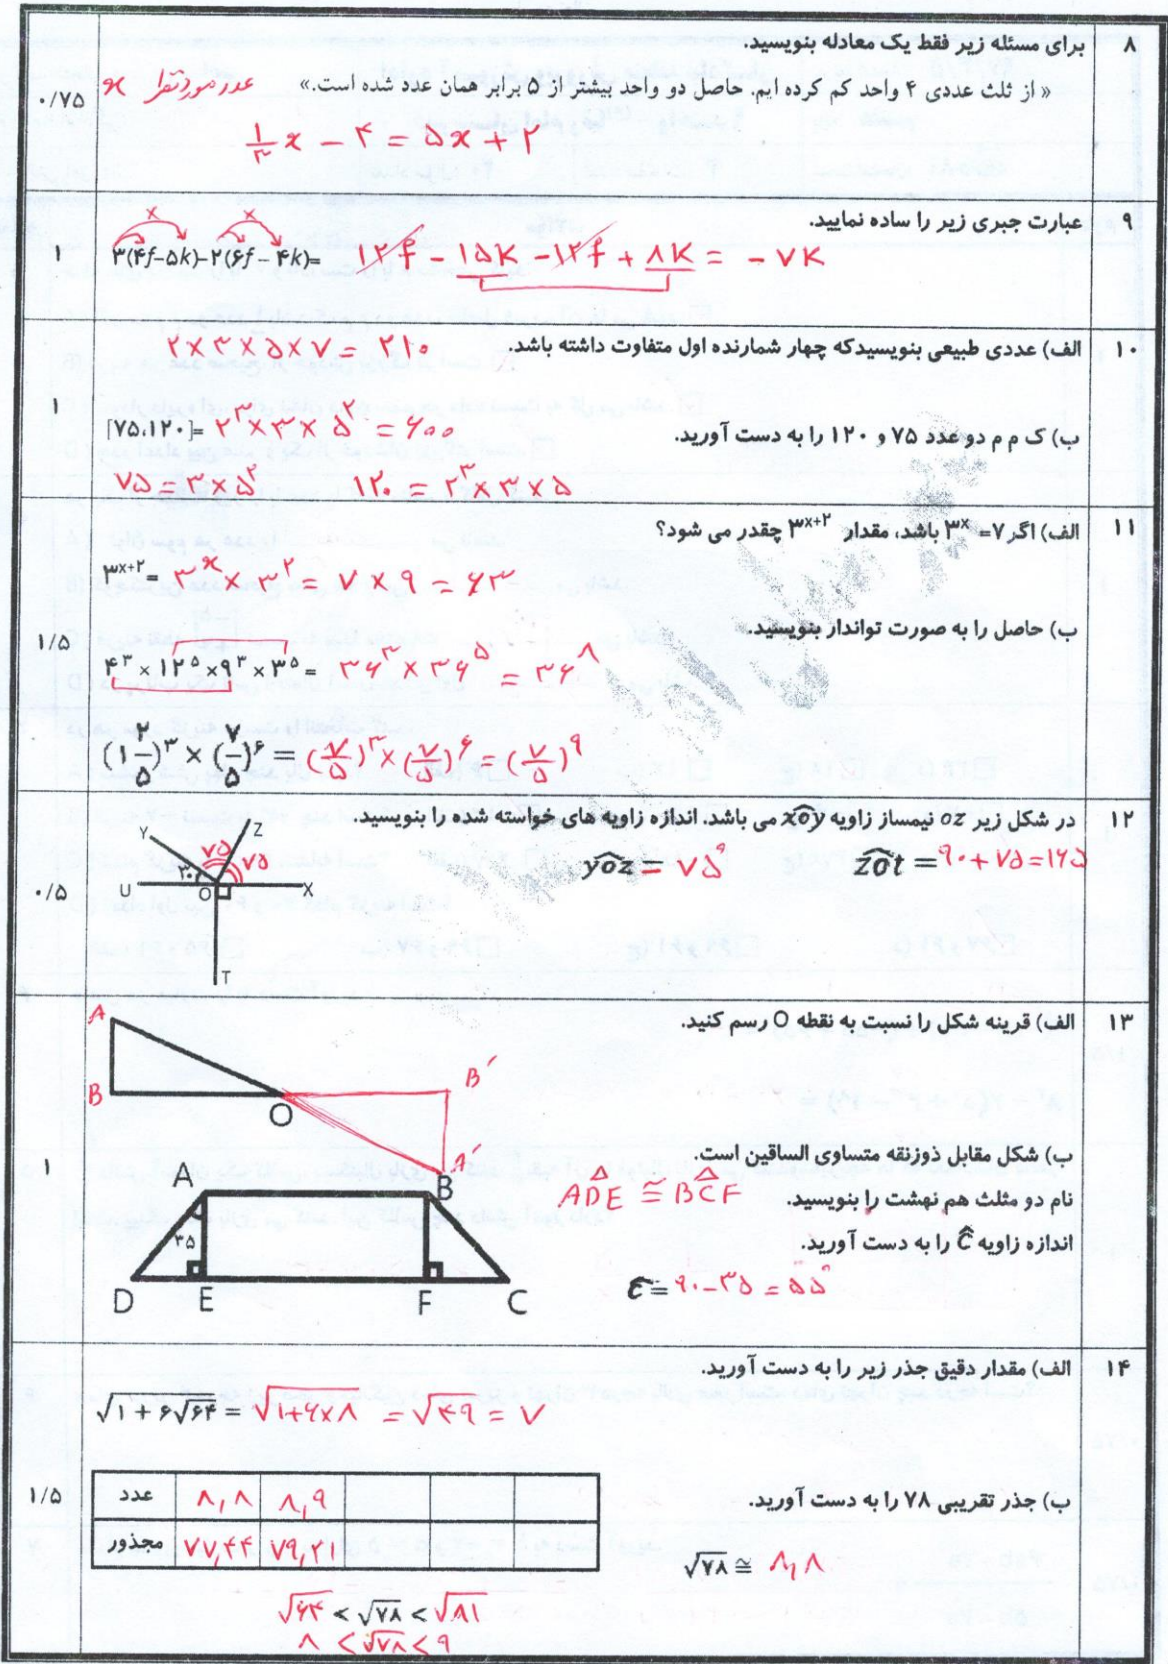 ۸ برای مسئله زیر فقط یک معادله بنویسید.
« از ثلث عددی ۴ واحد کم کرده ایم. حاصل دو واحد بیشتر از ۵ برابر همان عدد شده است.» عدد مورد نظر x
۰/۷۵
۱/۳ x − ۴ = ۵x + ۲
۹ عبارت جبری زیر را ساده نمایید.
۱
۳(۴f-۵k)-۲(۶f-۴k)= ۱۲f − ۱۵K − ۱۲f + ۸K = − ۷K
۱۰ الف) عددی طبیعی بنویسیدکه چهار شمارنده اول متفاوت داشته باشد.
۲×۳×۵×۷ = ۲۱۰
۱
ب) ک م م دو عدد ۷۵ و ۱۲۰ را به دست آورید.
[۷۵،۱۲۰]= ۲^۳×۳×۵^۲ = ۶۰۰
۷۵ = ۳×۵^۲ ۱۲۰ = ۲^۳×۳×۵
۱۱ الف) اگر ۷=۳^x باشد، مقدار ۳^{x+۲} چقدر می شود؟
۳^{x+۲}= ۳^x × ۳^۲ = ۷ × ۹ = ۶۳
ب) حاصل را به صورت تواندار بنویسید.
۱/۵
۴^۳ × ۱۲^۵ × ۹^۳ × ۳^۵ = ۳۶^۳ × ۳۶^۵ = ۳۶^۸
(۱ ۲/۵)^۳ × (۷/۵)^۶ = (۷/۵)^۳ × (۷/۵)^۶ = (۷/۵)^۹
۱۲ در شکل زیر oz نیمساز زاویه xôy می باشد. اندازه زاویه های خواسته شده را بنویسید.
yôz = ۷۵° zôt = ۹۰+۷۵=۱۶۵
۰/۵
Y Z
۷۵ ۷۵
۳۰
U O X
T
۱۳ الف) قرینه شکل را نسبت به نقطه O رسم کنید.
A
B B′
O
A′
۱
ب) شکل مقابل ذوزنقه متساوی الساقین است.
نام دو مثلث هم نهشت را بنویسید.
ADE ≅ BCF
اندازه زاویه Ĉ را به دست آورید.
Ĉ= ۹۰−۳۵ = ۵۵°
A B
۳۵
D E F C
۱۴ الف) مقدار دقیق جذر زیر را به دست آورید.
√۱ + ۶√۶۴ = √۱+۶×۸ = √۴۹ = ۷
۱/۵
ب) جذر تقریبی ۷۸ را به دست آورید.
عدد ۸,۸ ۸,۹
مجذور ۷۷,۴۴ ۷۹,۲۱
√۷۸ ≅ ۸,۸
√۶۴ < √۷۸ < √۸۱
۸ < √۷۸ < ۹